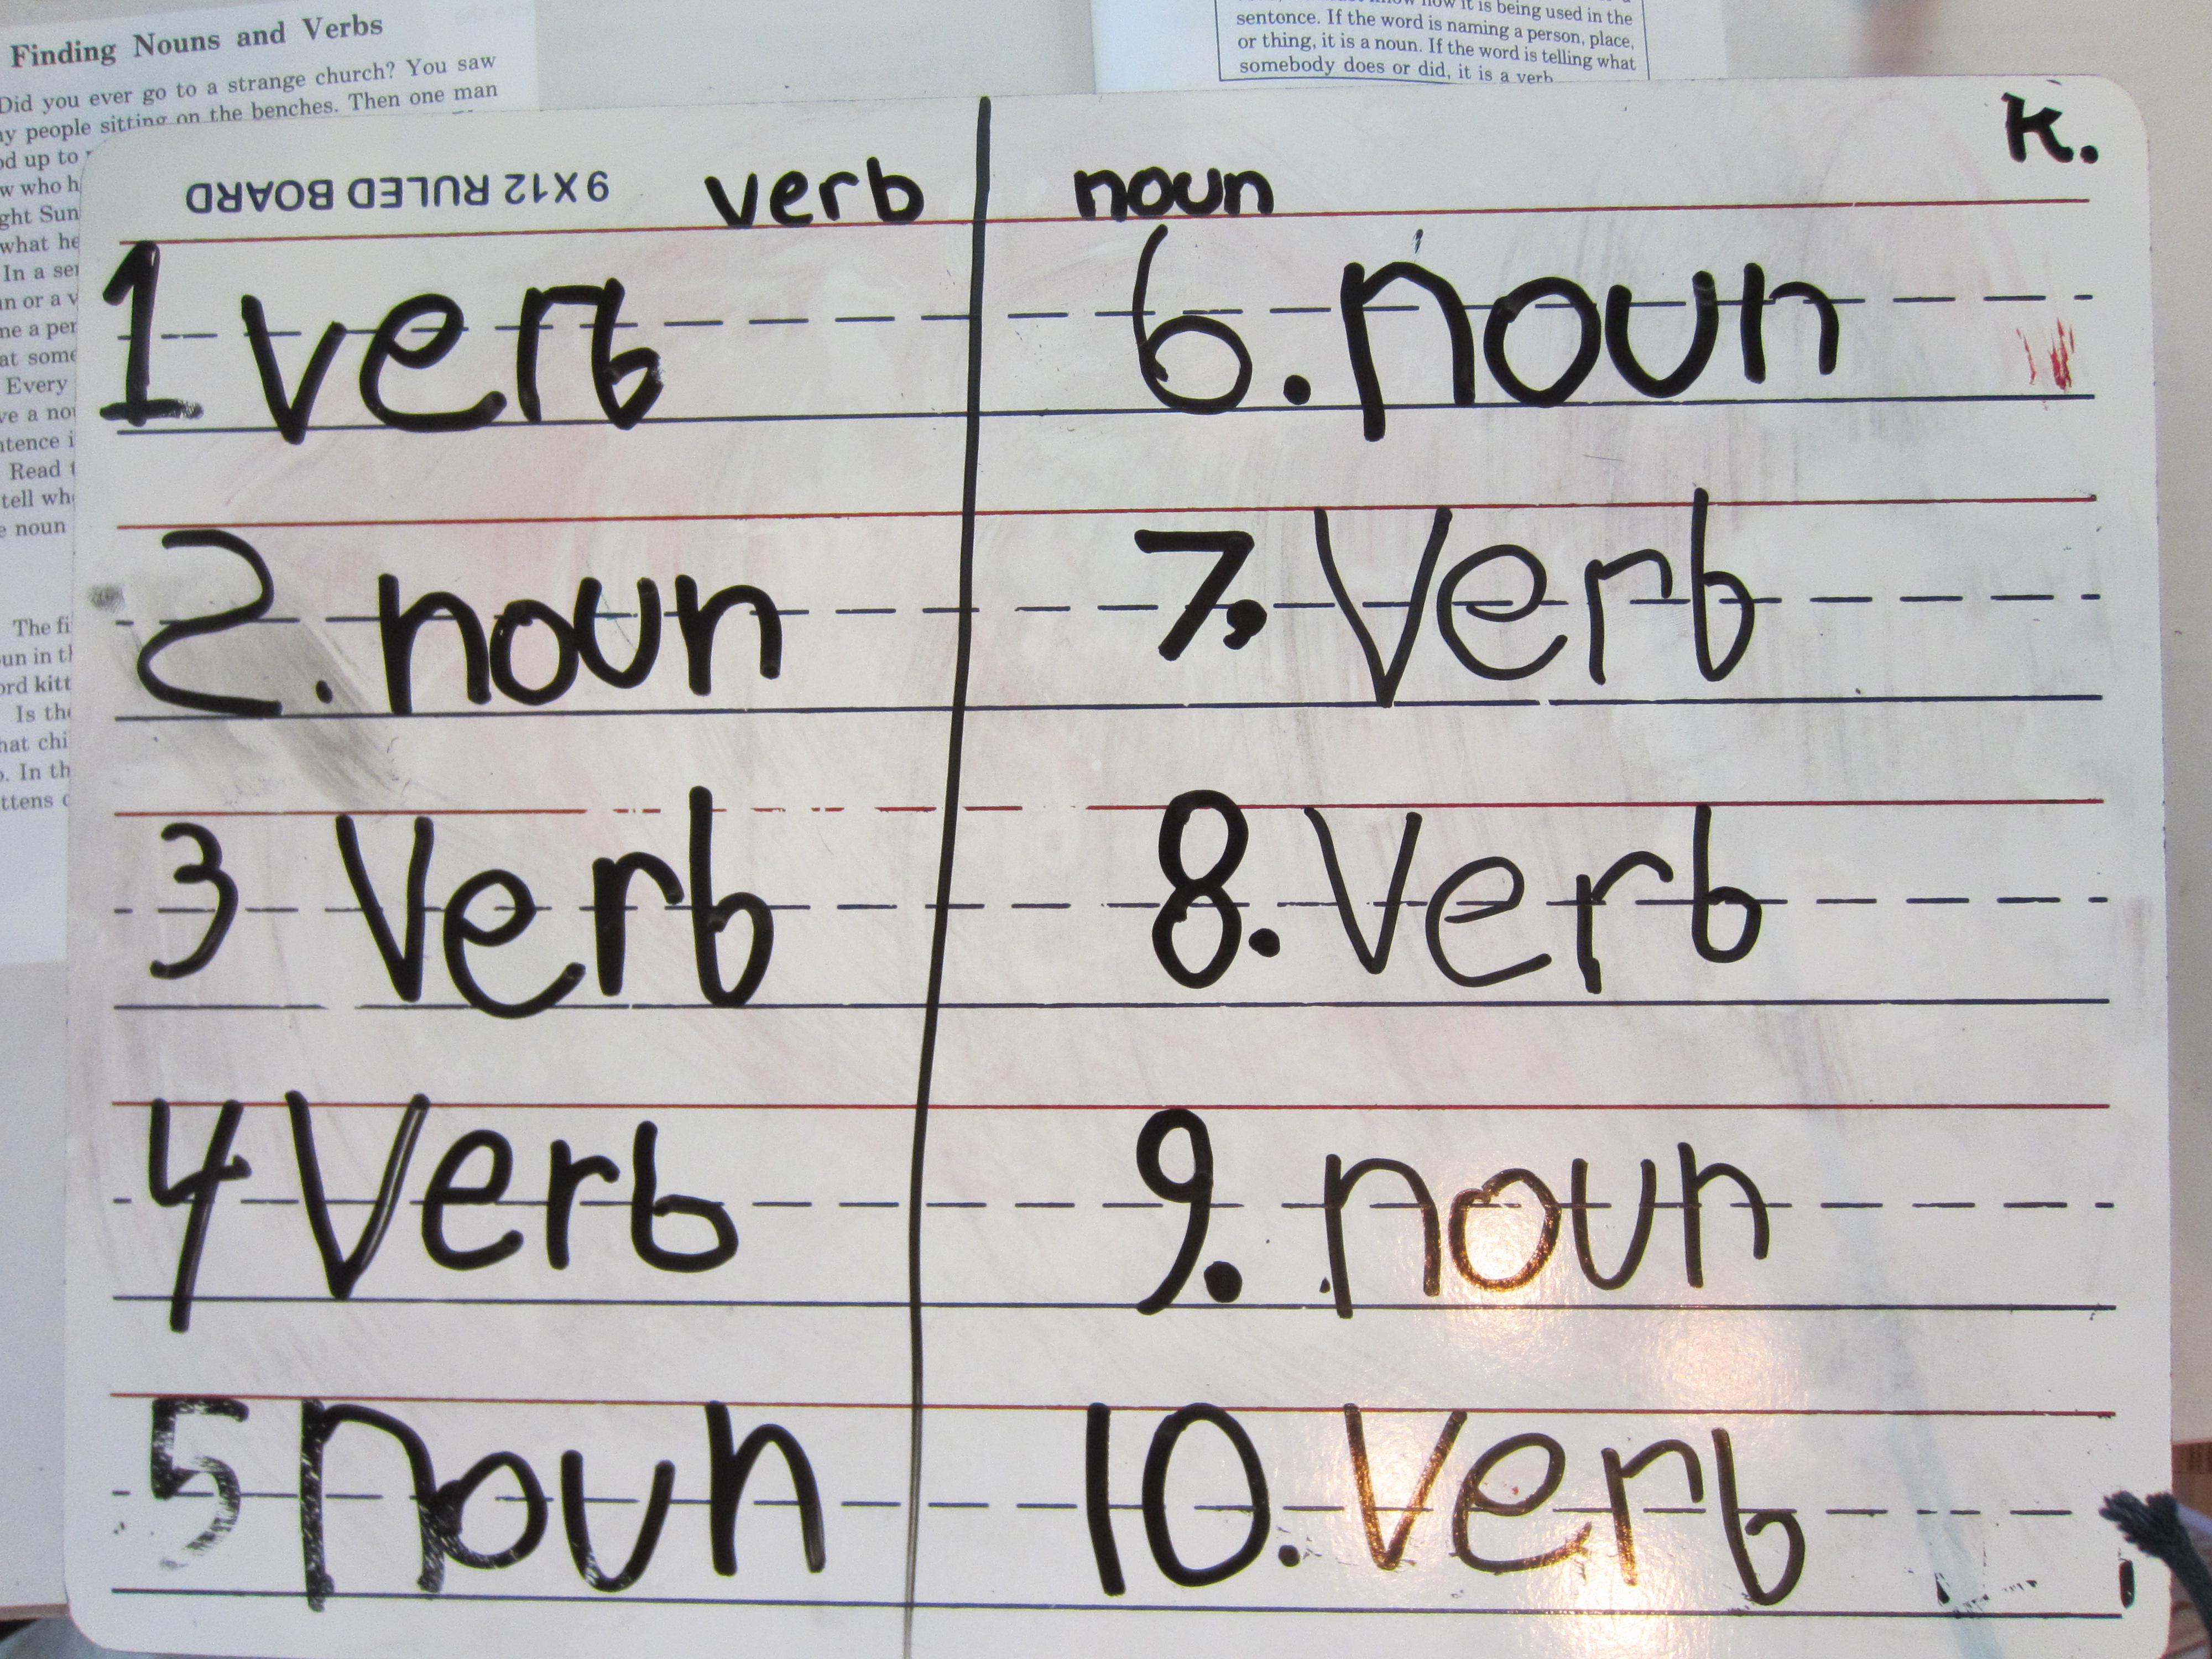 Finding Nouns and Verbs
Did you ever go to a strange church? You saw
people sitting on the benches. Then one man
up to
w who h
ght Sun
what he
In a
n or a v
me a per
at some
Every
ve a
ntence i
Read
tell wh
noun
The fi
un in
ord kitt
Is the
hat chi
In th
ttens
it is being used in the
sentence. If the word is naming a person, place,
or thing, it is a noun. If the word is telling what
somebody does or did, it is a verb
K.
9X12 RULED BOARD
verb
noun
1 verb
2. noun
3 Verb
4 Verb
5 noun
6. noun
7. Verb
8. Verb
9. noun
10. Verb